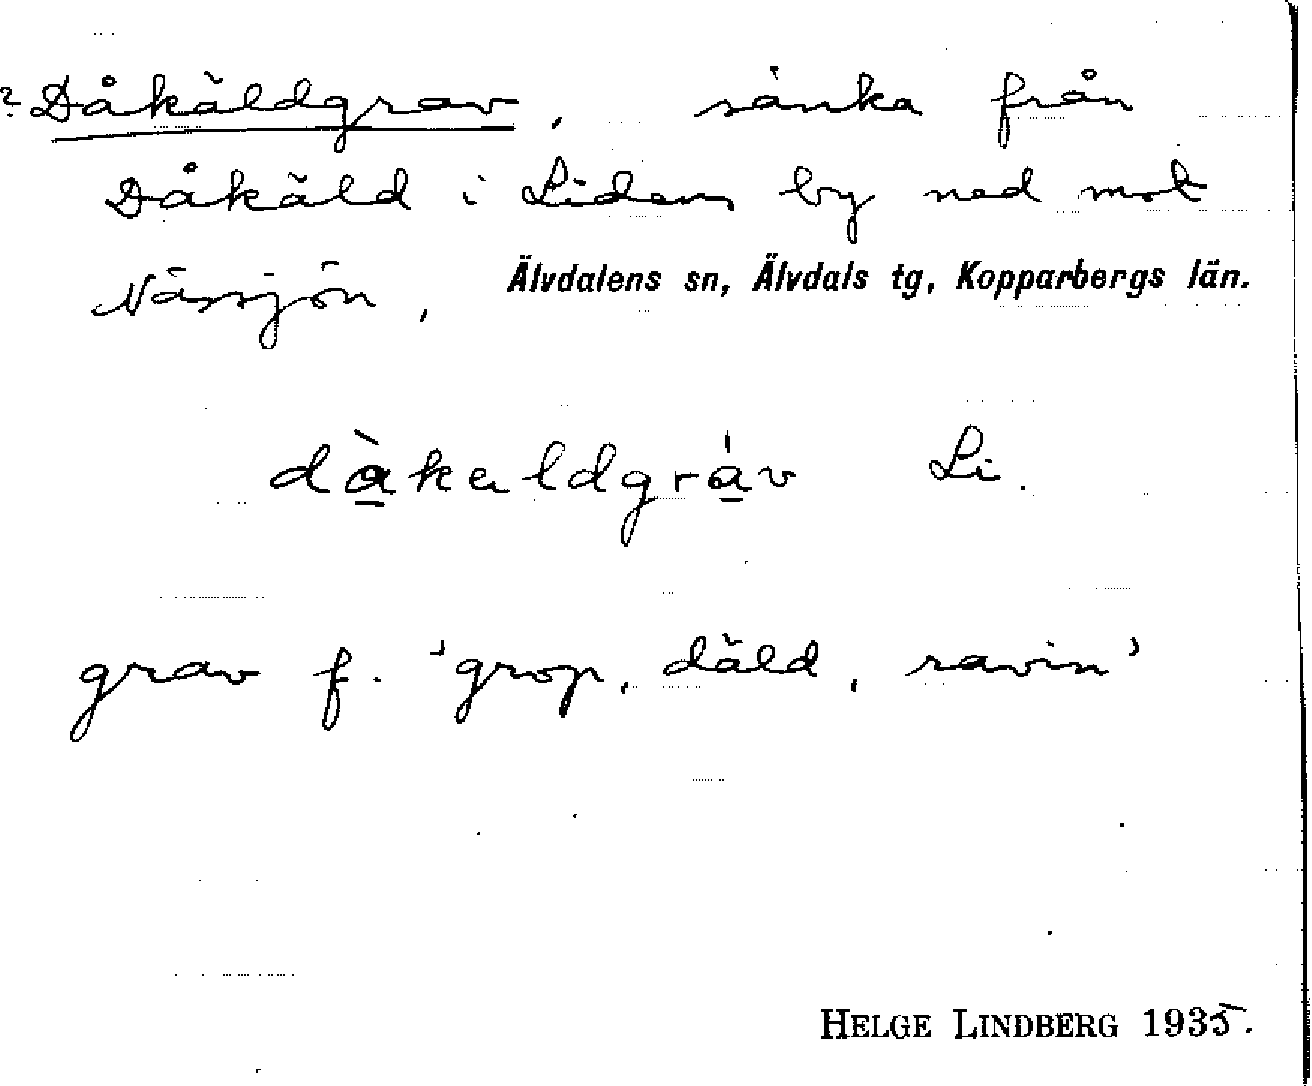 ? Dåkäldgrav, sänka från
Dåkäld i Lidens by ned mot
Nässjön, Älvdalens sn, Älvdals tg, Kopparbergs län.
dàkaldgráv Li.
grav f. 'grop, däld, ravin'
HELGE LINDBERG 1935.